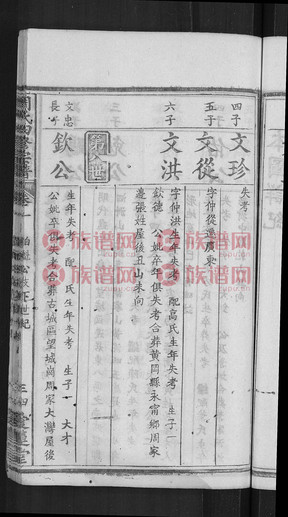 四子
文珍
失考
五子
文從
字仲從遷廣東
六子
文洪
字仲洪生年失考 配高氏生年失考 生子一
欽德 公妣卒年俱失考合葬黃岡縣永甯鄉周家
邊張姓屋後丑山未向
第八世
文忠長子
欽公
生年失考 配 氏生年失考 生子一 大才
公妣卒年失考合葬古城區望城崗周家大灣屋後
族谱网